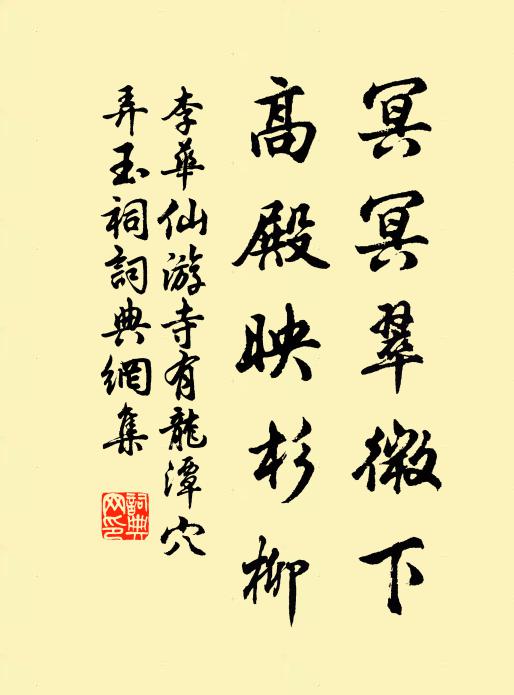 冥冥翠微下
高殿映杉柳
李華仙游寺有龍潭穴
弄玉祠詞典網集
詞典網印